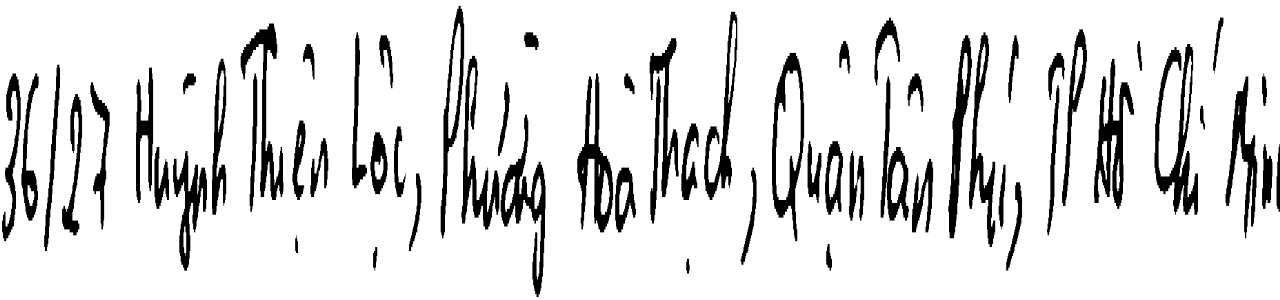 36/27 Huỳnh Thiện Lộc, Phường Hoà Thạch, Quận Tân Phú, TP Hồ Chí Min